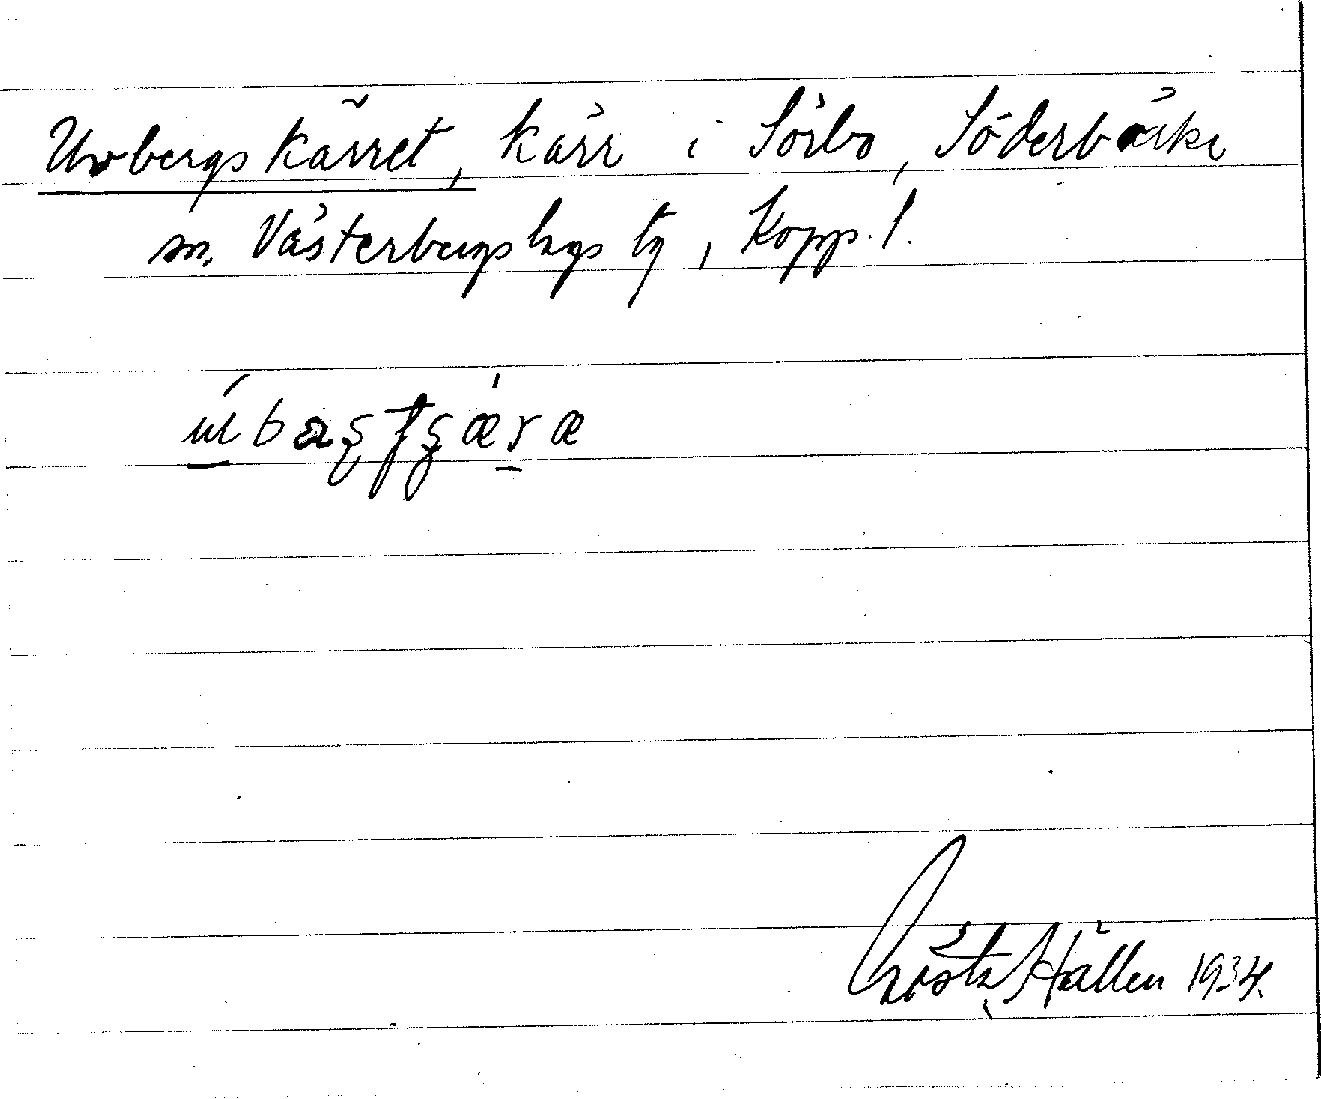 Urbergskärret, kärr i Sörbo, Söderbärke
sn, Västerbergslags tg, Kopp. l.
Gösta Hällen 1934.